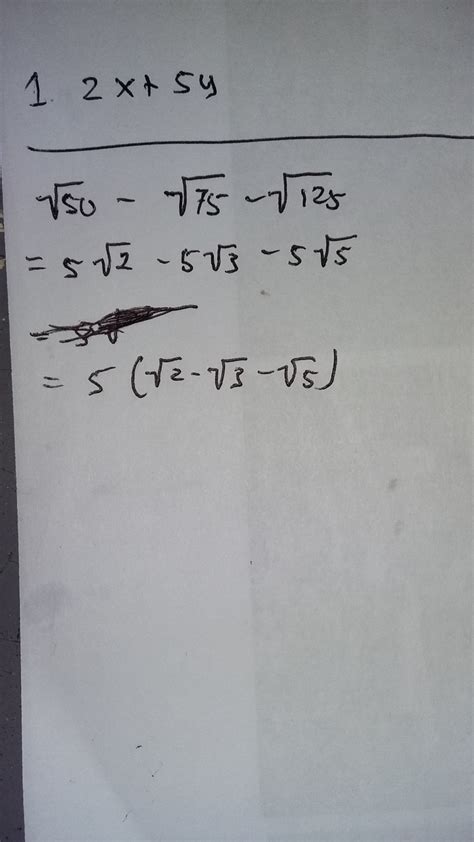 1. 2x+5y
√50 - √75 - √125
= 5√2 - 5√3 - 5√5
=
= 5 (√2 - √3 - √5)